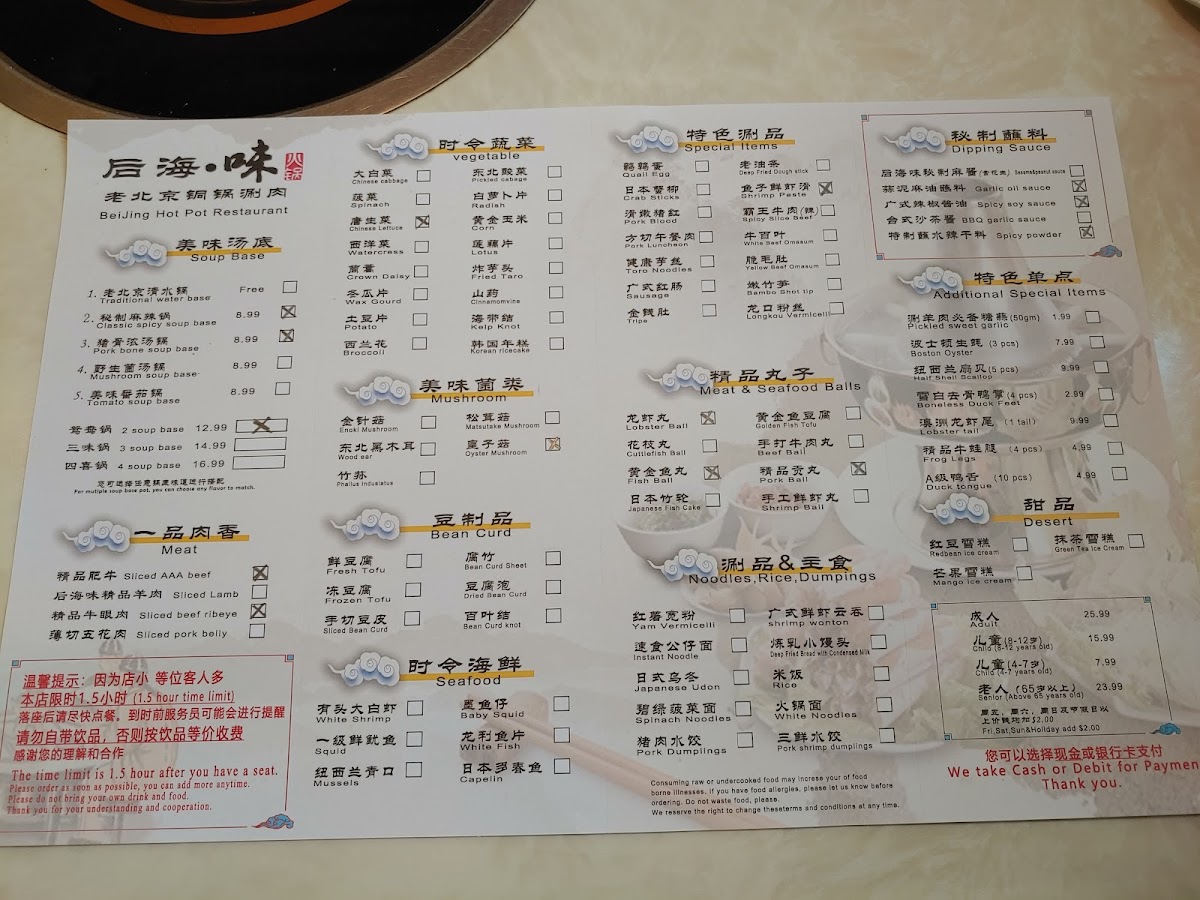 后海·味
火锅
老北京铜锅涮肉
BeiJing Hot Pot Restaurant
美味汤底
Soup Base
1. 老北京清水锅 Free
Traditional water base
2. 秘制麻辣锅 8.99
Classic spicy soup base
3. 猪骨浓汤锅 8.99
Pork bone soup base
4. 野生菌汤锅 8.99
Mushroom soup base
5. 美味番茄锅 8.99
Tomato soup base
鸳鸯锅 2 soup base 12.99
三味锅 3 soup base 14.99
四喜锅 4 soup base 16.99
您可选择任意锅底味道进行搭配
For mutiple soup base pot, you can choose any flavor to match.
一品肉香
Meat
精品肥牛 Sliced AAA beef
后海味精品羊肉 Sliced Lamb
精品牛眼肉 Sliced beef ribeye
薄切五花肉 Sliced pork belly
温馨提示: 因为店小 等位客人多
本店限时1.5小时 (1.5 hour time limit)
落座后请尽快点餐。到时前服务员可能会进行提醒
请勿自带饮品, 否则按饮品等价收费
感谢您的理解和合作
The time limit is 1.5 hour after you have a seat.
Please order as soon as possible, you can add more anytime.
Please do not bring your own drink and food.
Thank you for your understanding and cooperation.
时令蔬菜
vegetable
大白菜
Chinese cabbage
菠菜
Spinach
唐生菜
Chinese Lettuce
西洋菜
Watercress
茼蒿
Crown Daisy
冬瓜片
Wax Gourd
土豆片
Potato
西兰花
Broccoli
东北酸菜
Pickled cabage
白萝卜片
Radish
黄金玉米
Corn
莲藕片
Lotus
炸芋头
Fried Taro
山药
Cinnamomvine
海带结
Kelp Knot
韩国年糕
Korean ricecake
美味菌类
Mushroom
金针菇
Enoki Mushroom
东北黑木耳
Wood ear
竹荪
Phallus indusiatus
松茸菇
Matsutake Mushroom
皇子菇
Oyster Mushroom
豆制品
Bean Curd
鲜豆腐
Fresh Tofu
冻豆腐
Frozen Tofu
手切豆皮
Sliced Bean Curd
腐竹
Bean Curd Sheet
豆腐泡
Dried Bean Curd
百叶结
Bean Curd knot
时令海鲜
Seafood
有头大白虾
White Shrimp
一级鲜鱿鱼
Squid
纽西兰青口
Mussels
墨鱼仔
Baby Squid
龙利鱼片
White Fish
日本多春鱼
Capelin
特色涮品
Special Items
鹌鹑蛋
Quail Egg
日本蟹柳
Crab Sticks
清嫩猪红
Pork Blood
方切午餐肉
Pork Luncheon
健康芋丝
Toro Noodles
广式红肠
Sausage
金钱肚
Tripe
老油条
Deep Fried Dough stick
鱼子鲜虾滑
Shrimp Paste
霸王牛肉(辣)
Spicy Slice Beef
牛百叶
White Beef Omasum
脆毛肚
Yellow Beef Omasum
嫩竹笋
Bambo Shot tip
龙口粉丝
Longkou Vermicelli
精品丸子
Meat & Seafood Balls
龙虾丸
Lobster Ball
花枝丸
Cuttlefish Ball
黄金鱼丸
Fish Ball
日本竹轮
Japanese Fish Cake
黄金鱼豆腐
Golden Fish Tofu
手打牛肉丸
Beef Ball
精品贡丸
Pork Ball
手工鲜虾丸
Shrimp Ball
涮品&主食
Noodles,Rice,Dumpings
红薯宽粉
Yam Vermicelli
速食公仔面
Instant Noodle
日式乌冬
Japanese Udon
碧绿菠菜面
Spinach Noodles
猪肉水饺
Pork Dumplings
广式鲜虾云吞
shrimp wonton
炼乳小馒头
Deep Fried Bread with Condensed Milk
米饭
Rice
火锅面
White Noodles
三鲜水饺
Pork shrimp dumplings
Consuming raw or undercooked food may increse your of food
borne illnesses. If you have food allergies, please let us know before
ordering. Do not waste food, please.
We reserve the right to change theseterms and conditions at any time.
秘制蘸料
Dipping Sauce
后海味秘制麻酱(黄花鱼) Sesame&peanut sauce
蒜泥麻油蘸料 Garlic oil sauce
广式辣椒酱油 Spicy soy sauce
台式沙茶酱 BBQ garlic sauce
特制蘸水辣干料 Spicy powder
特色单点
Additional Special Items
涮羊肉必备糖蒜(50gm) 1.99
Pickled sweet garlic
波士顿生蚝 (3 pcs) 7.99
Boston Oyster
纽西兰扇贝(5 pcs) 9.99
Half Shell Scallop
雪白去骨鸭掌(4 pcs) 2.99
Boneless Duck Feet
澳洲龙虾尾 (1 tail) 9.99
Lobster tail
精品牛蛙腿 (4 pcs) 4.99
Frog Legs
A级鸭舌 (10 pcs) 4.99
Duck tongue
甜品
Desert
红豆雪糕
Redbean ice cream
抹茶雪糕
Green Tea Ice Cream
芒果雪糕
Mango ice cream
成人 25.99
Adult
儿童(8-12岁) 15.99
Child (8-12 years old)
儿童(4-7岁) 7.99
Child (4-7 years old)
老人 (65岁以上) 23.99
Senior (Above 65 years old)
周五, 周六, 周日及节假日以
上价钱均加$2.00
Fri,Sat,Sun&Holiday add $2.00
您可以选择现金或银行卡支付
We take Cash or Debit for Paymen
Thank you.